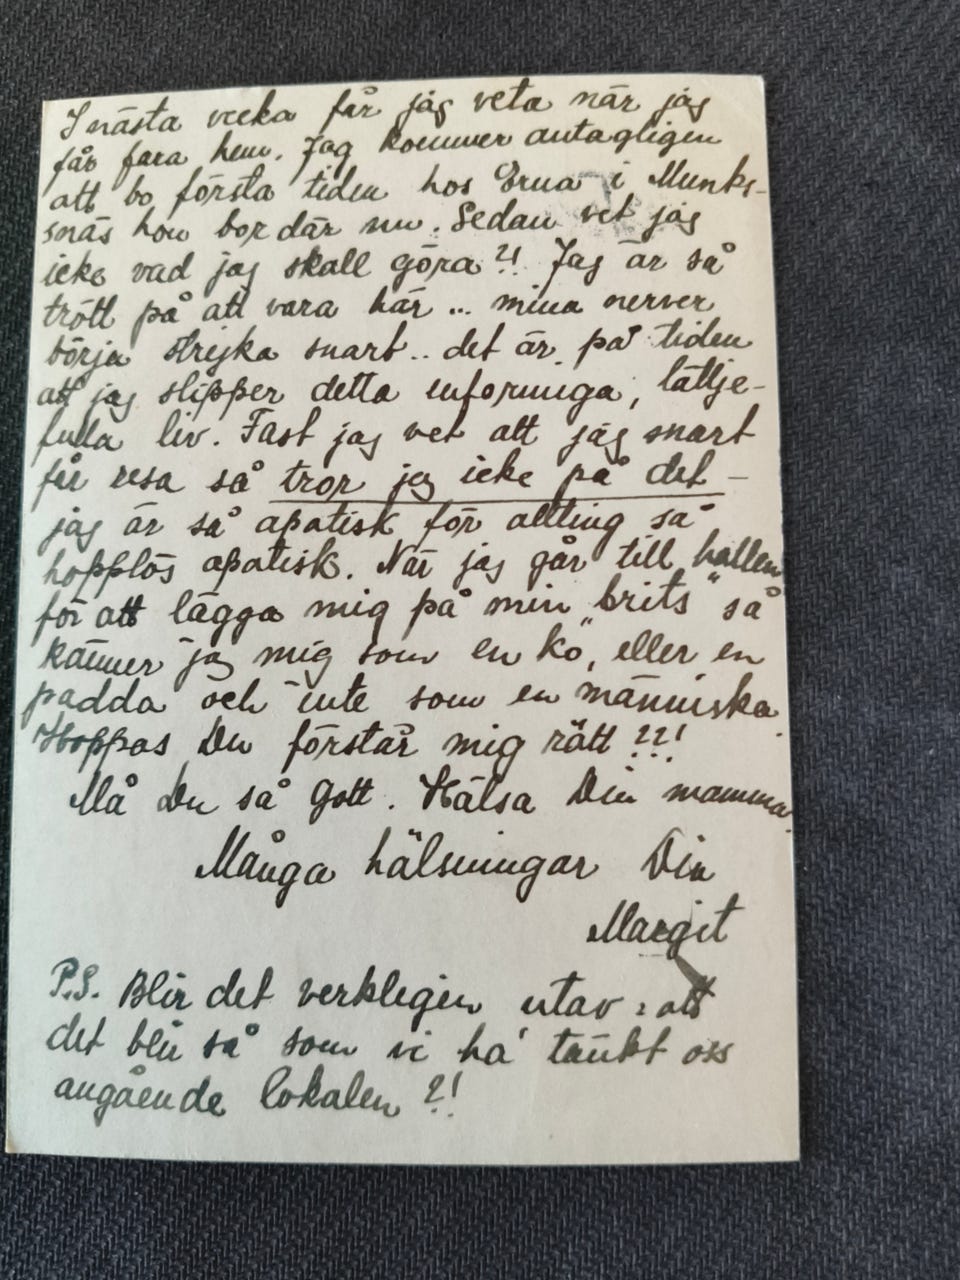 I nästa vecka får jag veta när jag
får fara hem. Jag kommer antagligen
att bo första tiden hos Erna i Munks-
snäs hon bor där nu. Sedan vet jag
icke vad jag skall göra?! Jag är så
trött på att vara här ... mina nerver
börja strejka snart.. det är på tiden
att jag slipper detta enformiga, lättje-
fulla liv. Fast jag vet att jag snart
får resa så tror jag icke på det –
jag är så apatisk för allting så
hopplös apatisk. När jag går till hallen
för att lägga mig på min "brits" så
känner jag mig som en ko, eller en
padda och inte som en människa.
Hoppas Du förstår mig rätt ??!
Må Du så gott. Hälsa Din mamma.
Många hälsningar Din
Margit
P.S. Blir det verkligen utav: att
det blir så som vi ha' tänkt oss
angående lokalen ?!